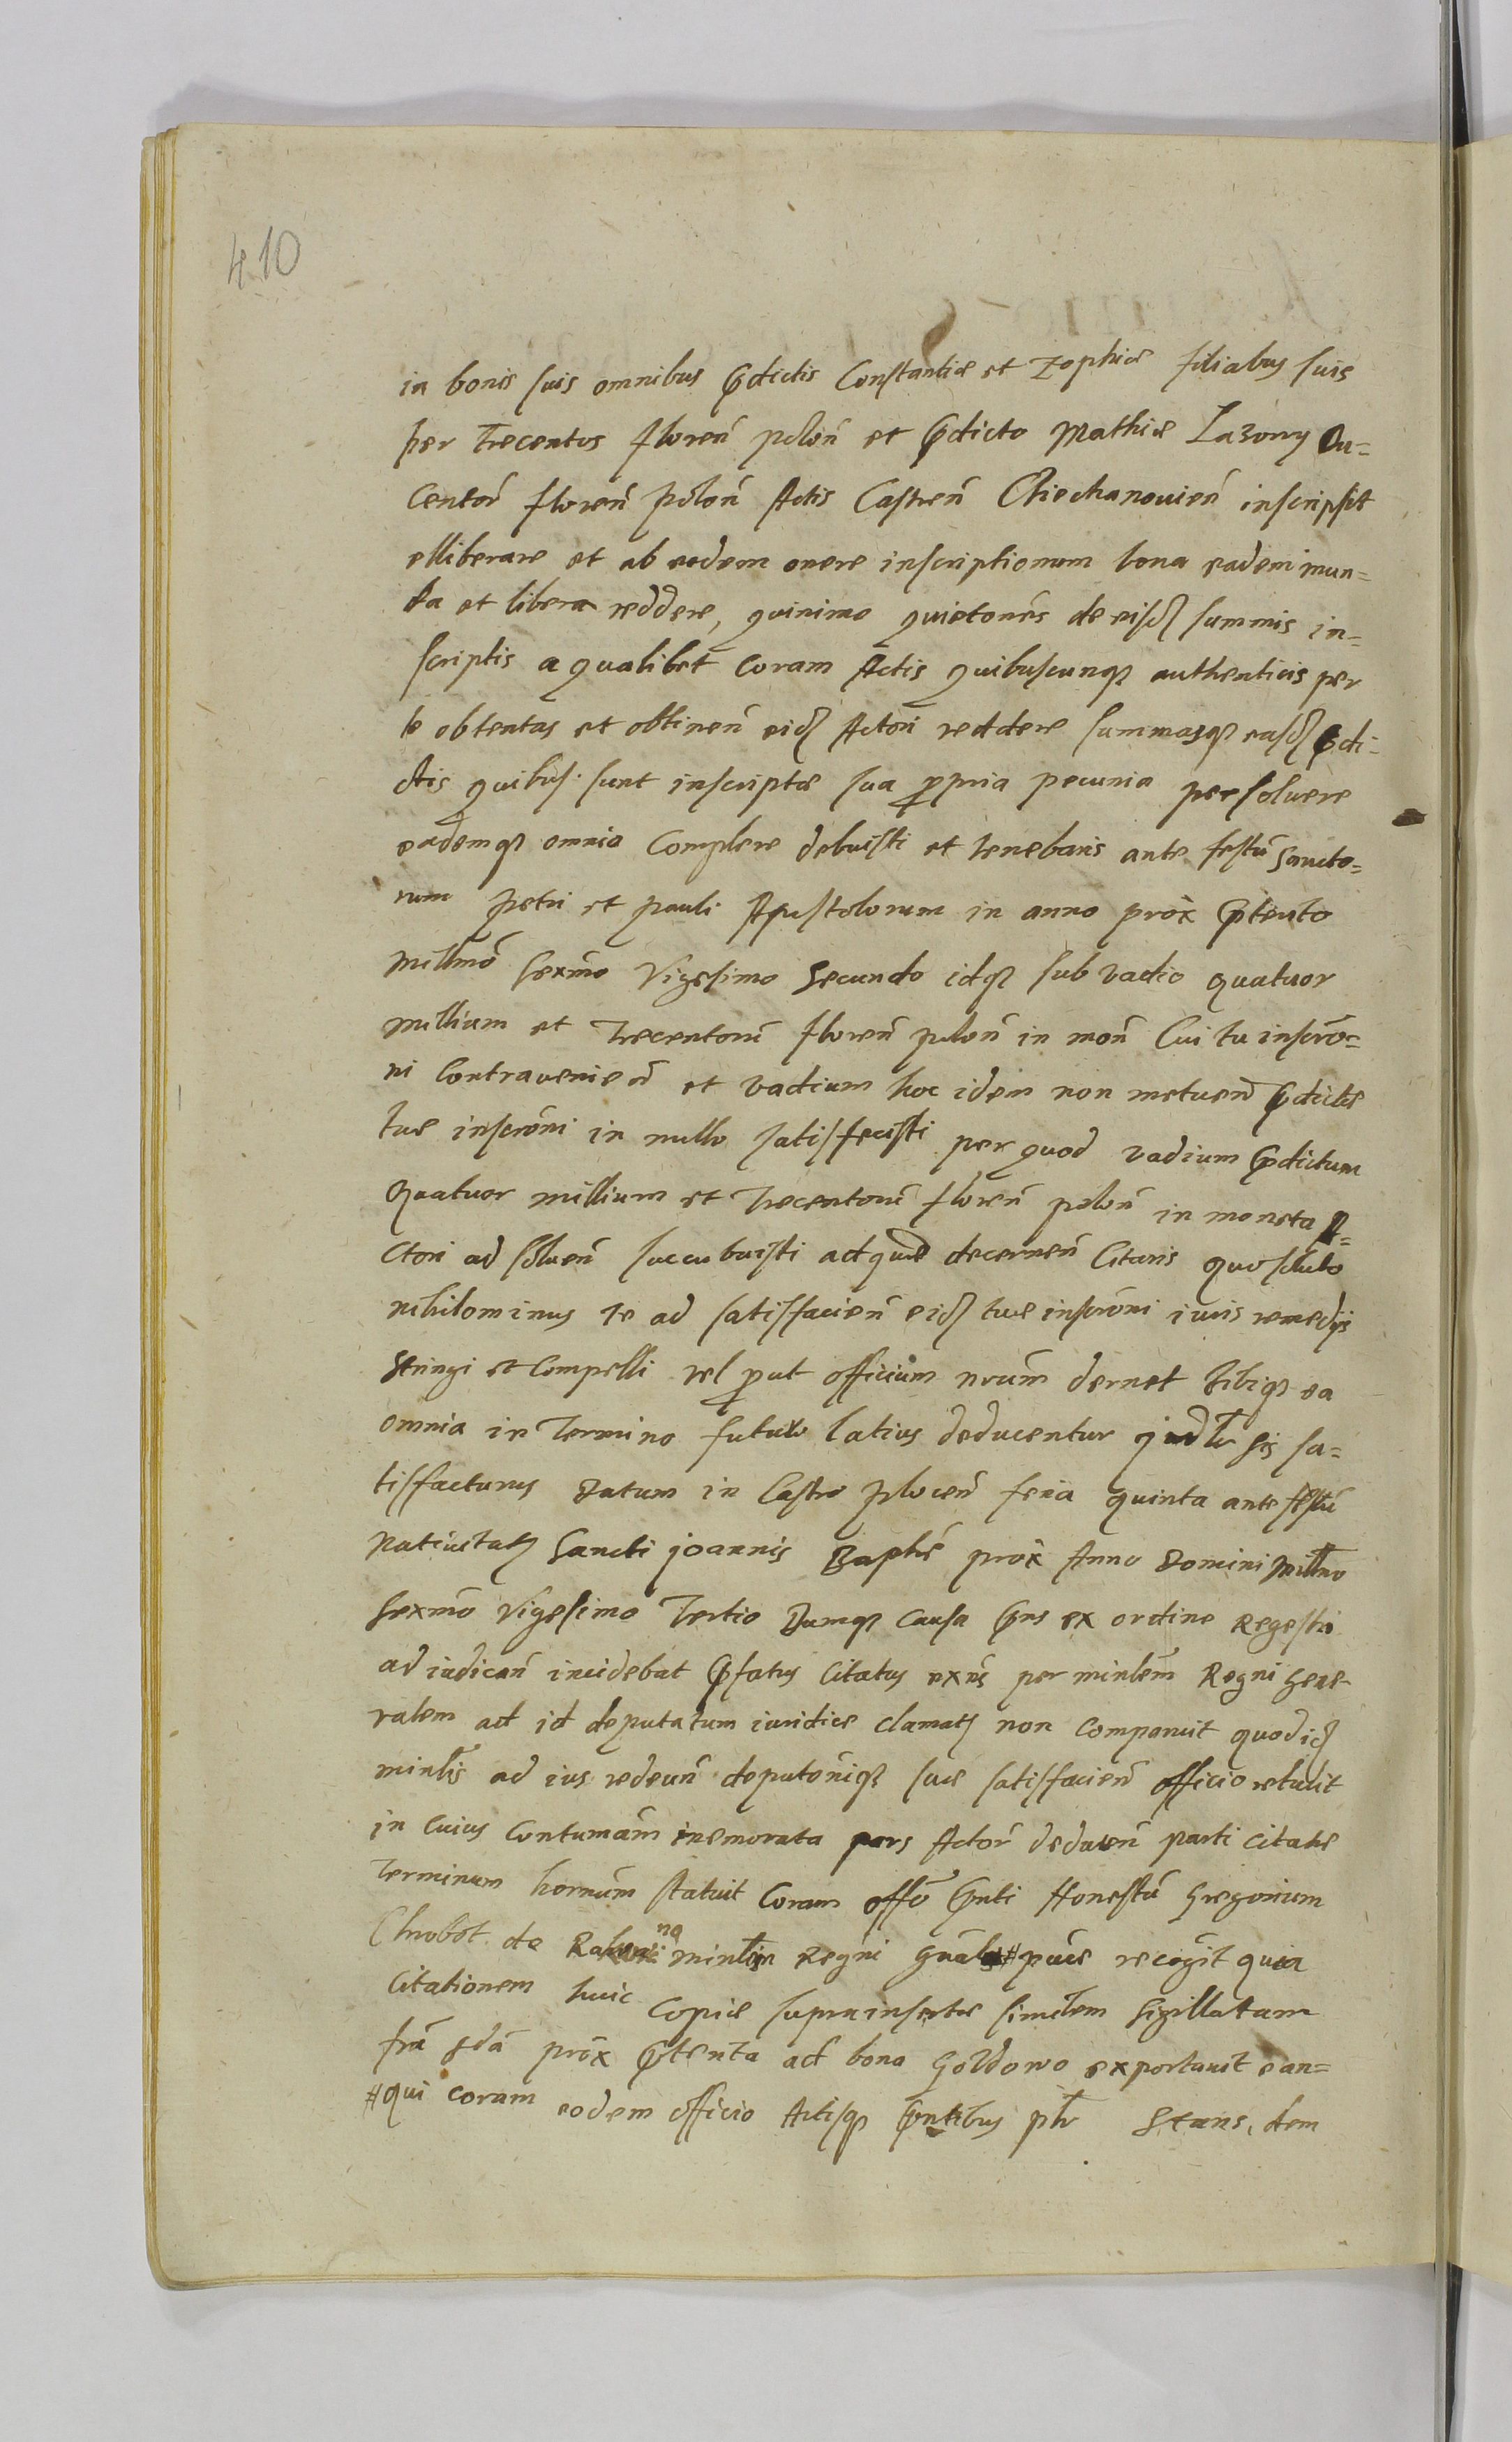 410
in bonis suis omnibus p̄dictis Constantiæ et Zophiæ filiabus suis
per Trecentos floren̄ polon̄ et p̄dicto Mathiæ Lazony Du=
centor̄ floren̄ polon̄ Actis Castren̄ Ciechanovien̄ inscripsit
elliberare et ab eodem onere inscriptionum bona eadem mun=
da et libera reddere, quinimo quieton̄es de eisd̄ summis in=
scriptis a qualibet coram Actis quibuscunq̢ authenticis per
te obtentas et obtinen̄ eid̄ Actori reddere summasq̢ easd̄ p̄di=
ctis quibus sunt inscriptæ sua p̱pria pecunia persoluere
eademq̢ omnia complere debuisti et tenebaris ante festū Sancto=
rum Petri et Pauli Apostolorum in anno prox̄ p̄terito
Millmō Sexmō Vigesimo Secundo idq̢ sub vadio quatuor
millium et Trecentorū floren̄ polon̄ in mon̄ Cui tu inscrō=
ni contravenien̄ et vadium hoc idem non metuen̄ p̄dictæ
tuæ inscrōni in nullo satisfecisti per quod vadium p̄dictum
Quatuor millium et Trecentorū floren̄ polon̄ in moneta A=
ctori ad soluen̄ succubuisti ad quæ decernen̄ Citaris quo soluto
nihilominus te ad satisfacien̄ eid̄ tuæ inscrōni iuris remedijs
Stringi et compelli vel p̱ut officium nrūm dernet Tibiq̢ ea
omnia in Termino futuro latius deducentur iudlr̄ sis sa=
tisfacturus Datum in Castro Plocen̄ feria quinta ante festū
Nativitatis Sancti Joannis Baptæ prox̄ Anno Domini Millmo
Sexmō Vigesimo Tertio Dumq̢ causa p̄ns ex ordine Regestri
ad iudican̄ incidebat p̄fatus Citatus exn̄s per minlēm Regni Gene=
ralem ad id deputatum iuridice clamatus non comparuit quod id̄
minlīs ad ius redeun̄ deputōniq̢ suæ satisfacien̄ officio retulit
in cuius contumām memorata pars Actor̄ deducen̄ parti citatæ
Terminum hornūm statuit coram offō p̄nti Honestū Gregorium
Chrobot de na minlēm Regni Gnāl # pūce recogt̄ quia
Citationem huic copiæ suprainsertæ similem Sigillatam
frā 2dā prox̄ p̄terita ad bona Goldowo exportavit ean=
# qui coram eodem officio Actisq̢ p̄ntibus plr̄ Stans, dem